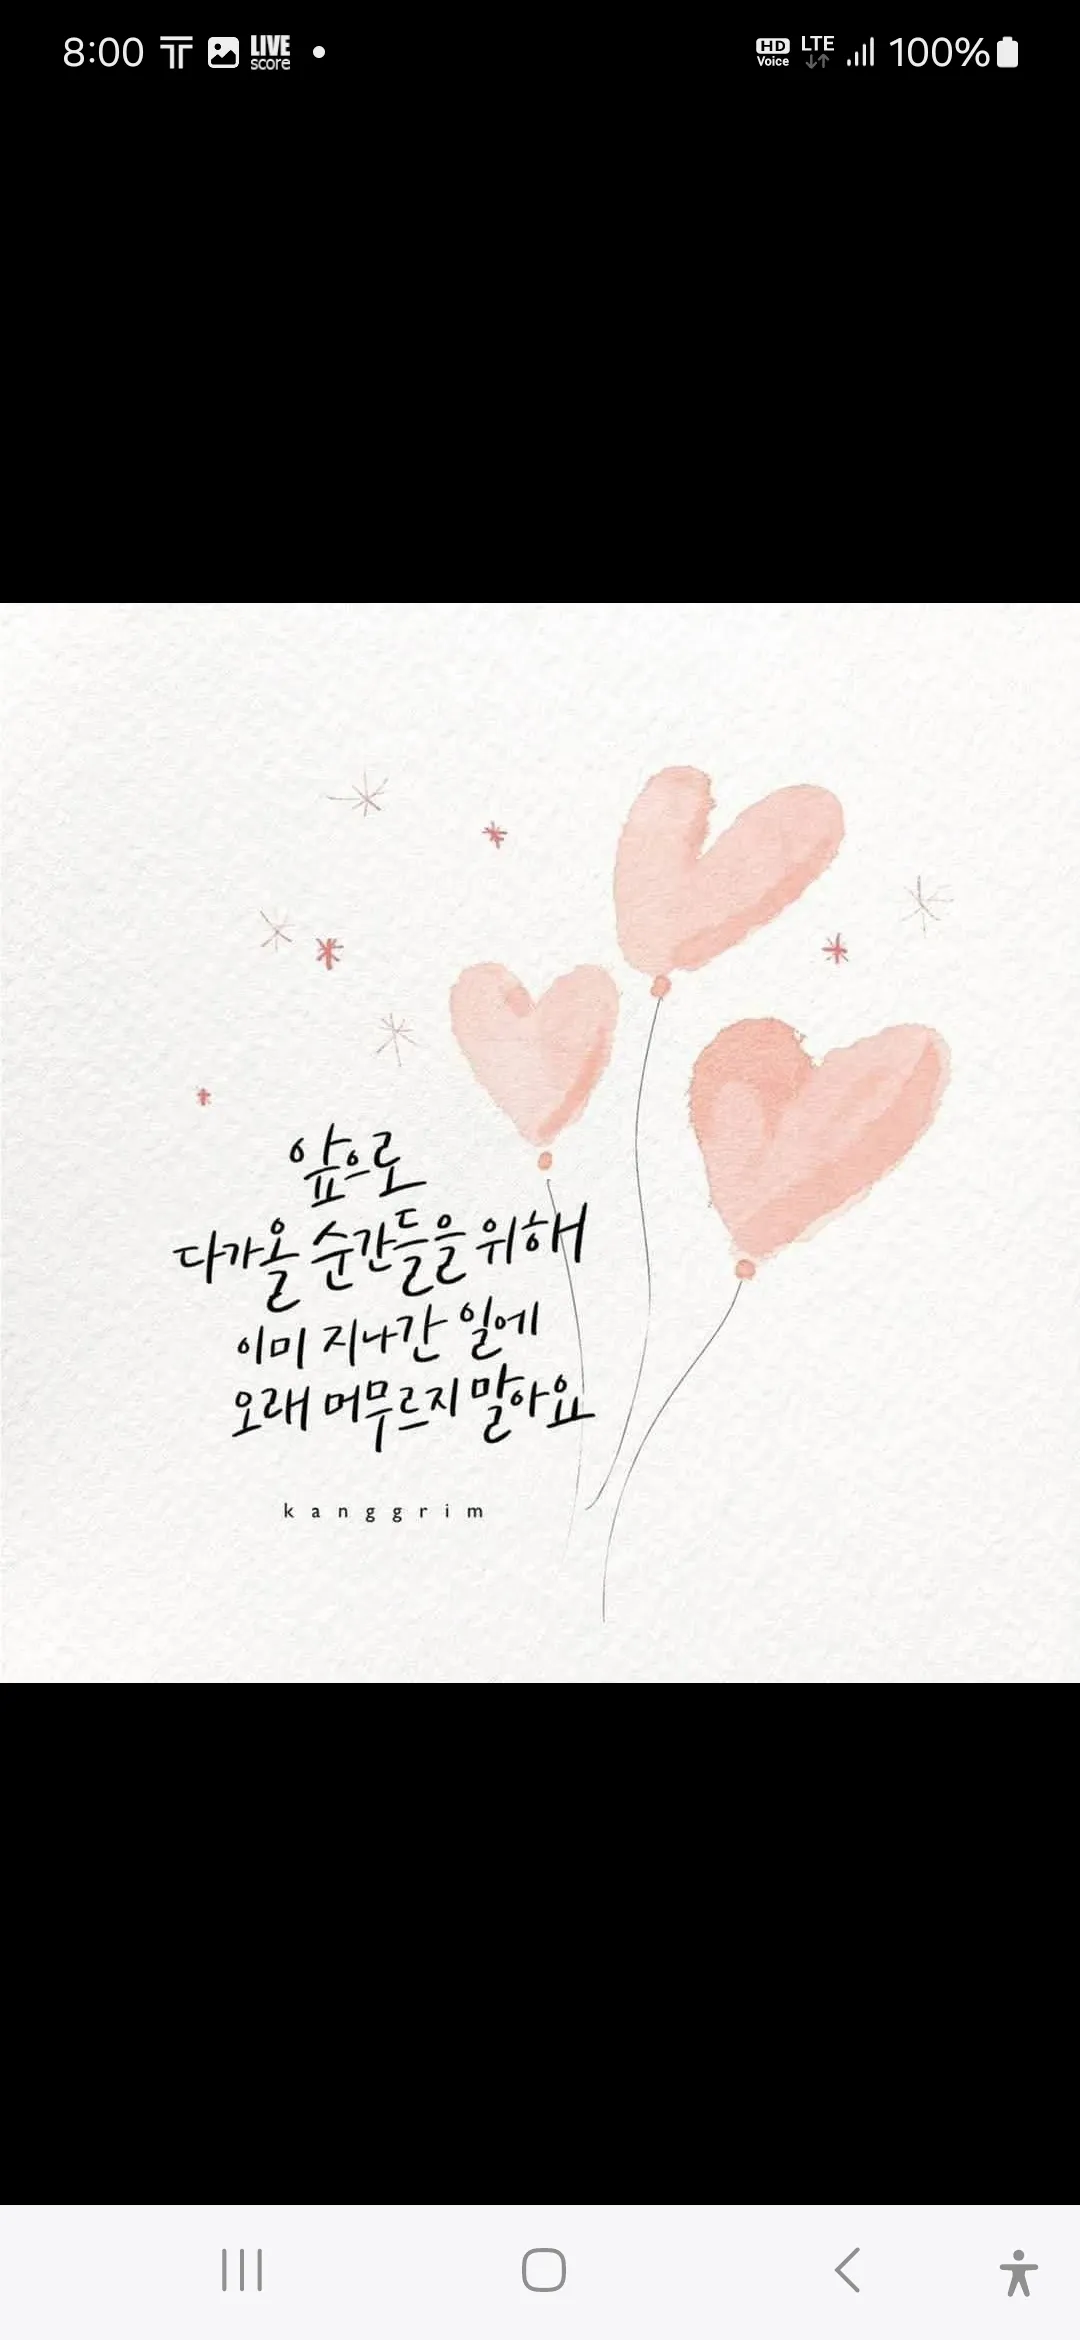 8:00 LIVE score HD Voice LTE 100%
앞으로
다가올 순간들을 위해
이미 지나간 일에
오래 머무르지 말아요
kanggrim